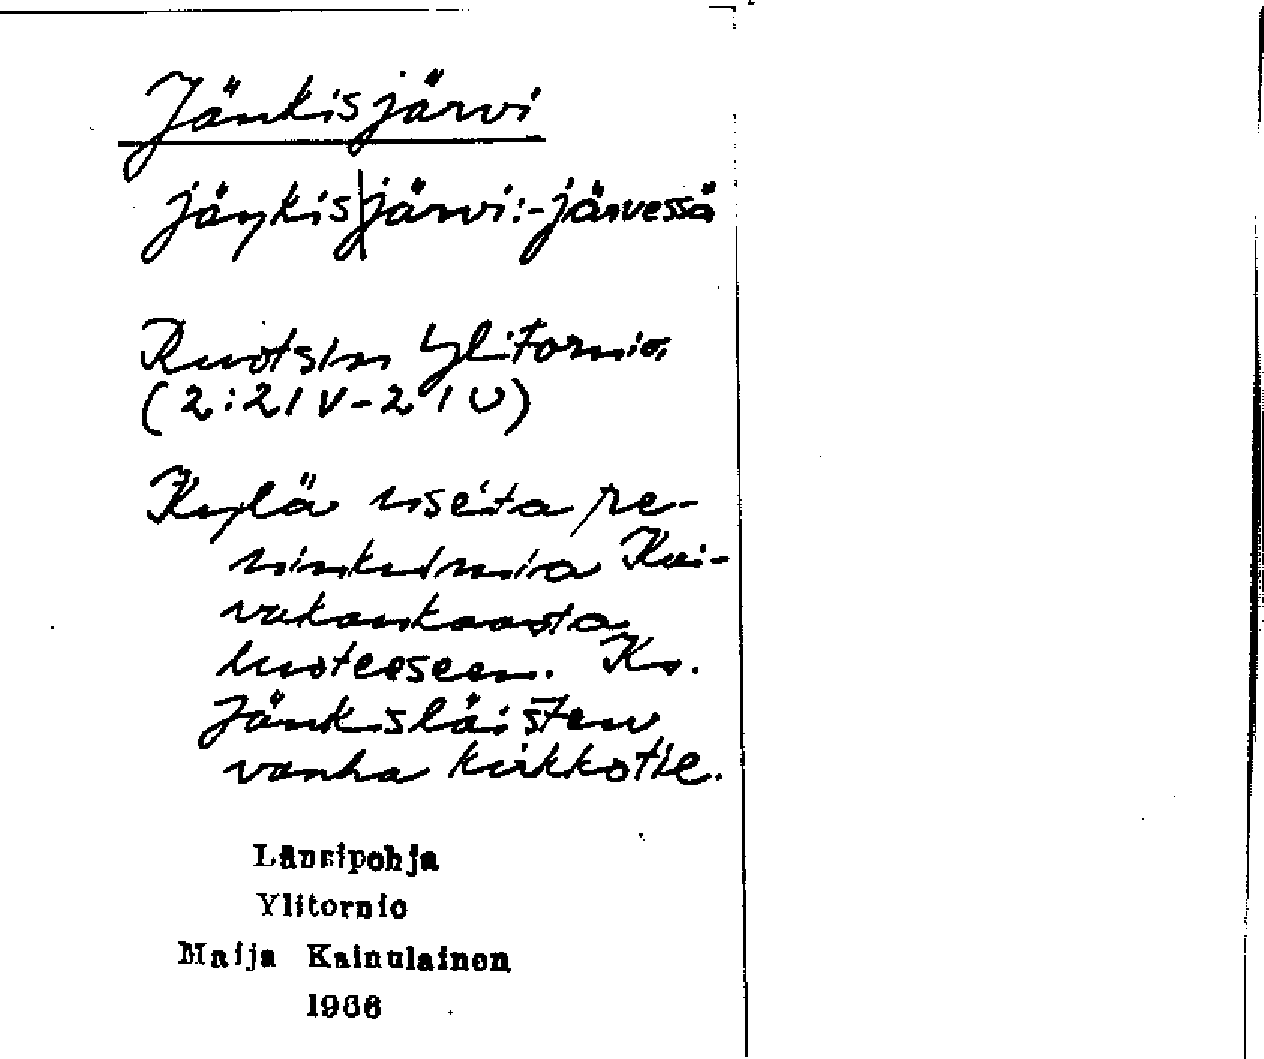 Jänkisjärvi
jäŋkis|järvi:-järvessä
Ruotsin Ylitornio,
(2:21V-21U)
Kylä useita pe-
ninkulmia Kai-
vakankaasta
luoteeseen. Ks.
Jänksläisten
vanha kirkkotie.
Länsipohja
Ylitornio
Maija Kainulainen
1966